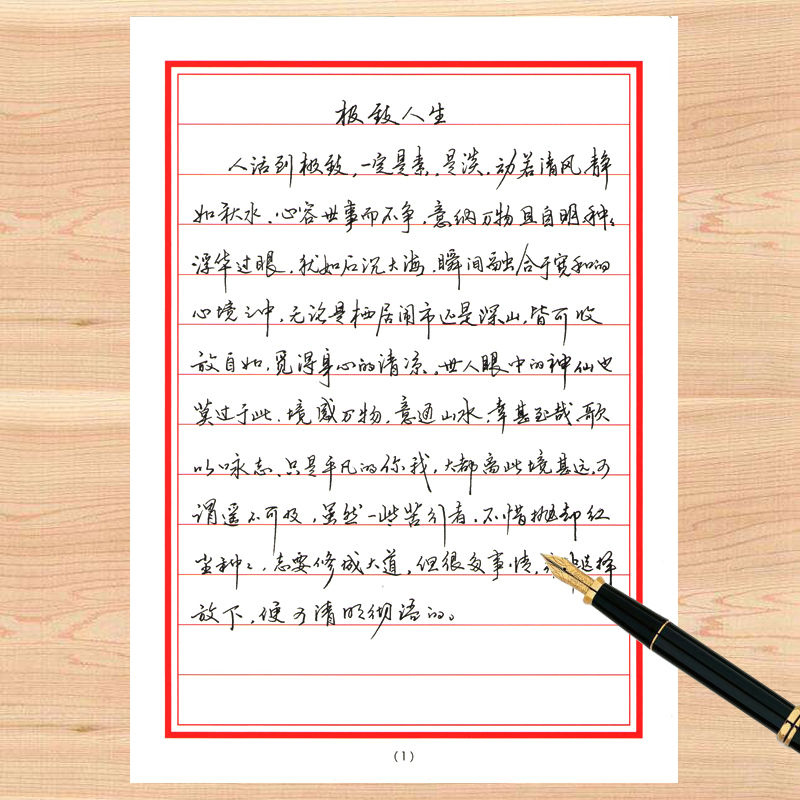 极致人生
人活到极致，一定是素，是淡，动若清风，静
如秋水，心容世事而不争，意纳万物且自明，种种
浮华过眼，犹如石沉大海，瞬间融合于宽和的
心境之中，无论是栖居闹市还是深山，皆可收
放自如，觅得身心的清凉。世人眼中的神仙也
莫过于此，境感万物，意通山水，幸甚至哉，歌
以咏志、只是平凡的你我，大都离此境甚远，可
谓遥不可及，虽然一些苦行者，不惜抛却红
尘种种，志要修成大道，但很多事情，选择
放下，便可清明彻悟的。
(1)